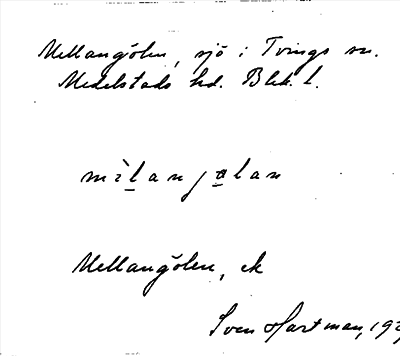 Mellangölen, sjö i Tvings sn.
Medelstads hd. Blek. l.
mèlanjølan
Mellangölen, ek
Sven Hartman, 192